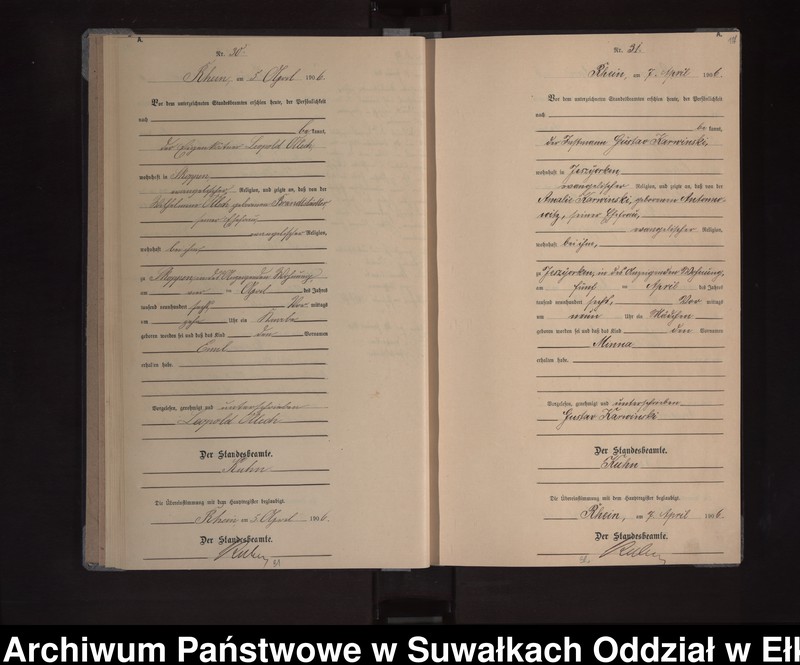 A.
Nr. 30.
Rhein, am 5. April 1906.
Vor dem unterzeichneten Standesbeamten erschien heute, der Persönlichkeit
nach
be kannt,
der Eigenkätner Leopold Olech
wohnhaft in Skoppen
evangelischer Religion, und zeigte an, daß von der
Wilhelmine Olech geborenen
seiner Ehefrau,
evangelischer Religion,
wohnhaft bei ihm,
zu Skoppen, in des Anzeigenden Wohnung
am ten April des Jahres
tausend neunhundert sechs Vor mittags
um Uhr ein Knabe
geboren worden sei und daß das Kind den Vornamen
Emil
erhalten habe.
Vorgelesen, genehmigt und unterschrieben
Leopold Olech
Der Standesbeamte.
Kuhn
Die Übereinstimmung mit dem Hauptregister beglaubigt.
Rhein, am 5. April 1906.
Der Standesbeamte.
Kuhn
31
A.
Nr. 31.
Rhein, am 7. April 1906.
Vor dem unterzeichneten Standesbeamten erschien heute, der Persönlichkeit
nach
be kannt,
der Instmann Gustav Karwinski,
wohnhaft in Jesziorken,
evangelischer Religion, und zeigte an, daß von der
Amalie Karwinski, geborenen Antono-
witz, seiner Ehefrau,
evangelischer Religion,
wohnhaft bei ihm,
zu Jesziorken, in des Anzeigenden Wohnung,
am fünf ten April des Jahres
tausend neunhundert sechs, Vor mittags
um neun Uhr ein Mädchen
geboren worden sei und daß das Kind den Vornamen
Minna
erhalten habe.
Vorgelesen, genehmigt und unterschrieben
Gustav Karwinski
Der Standesbeamte.
Kuhn
Die Übereinstimmung mit dem Hauptregister beglaubigt.
Rhein, am 7. April 1906.
Der Standesbeamte.
Kuhn
Archiwum Państwowe w Suwałkach Oddział w Ełk